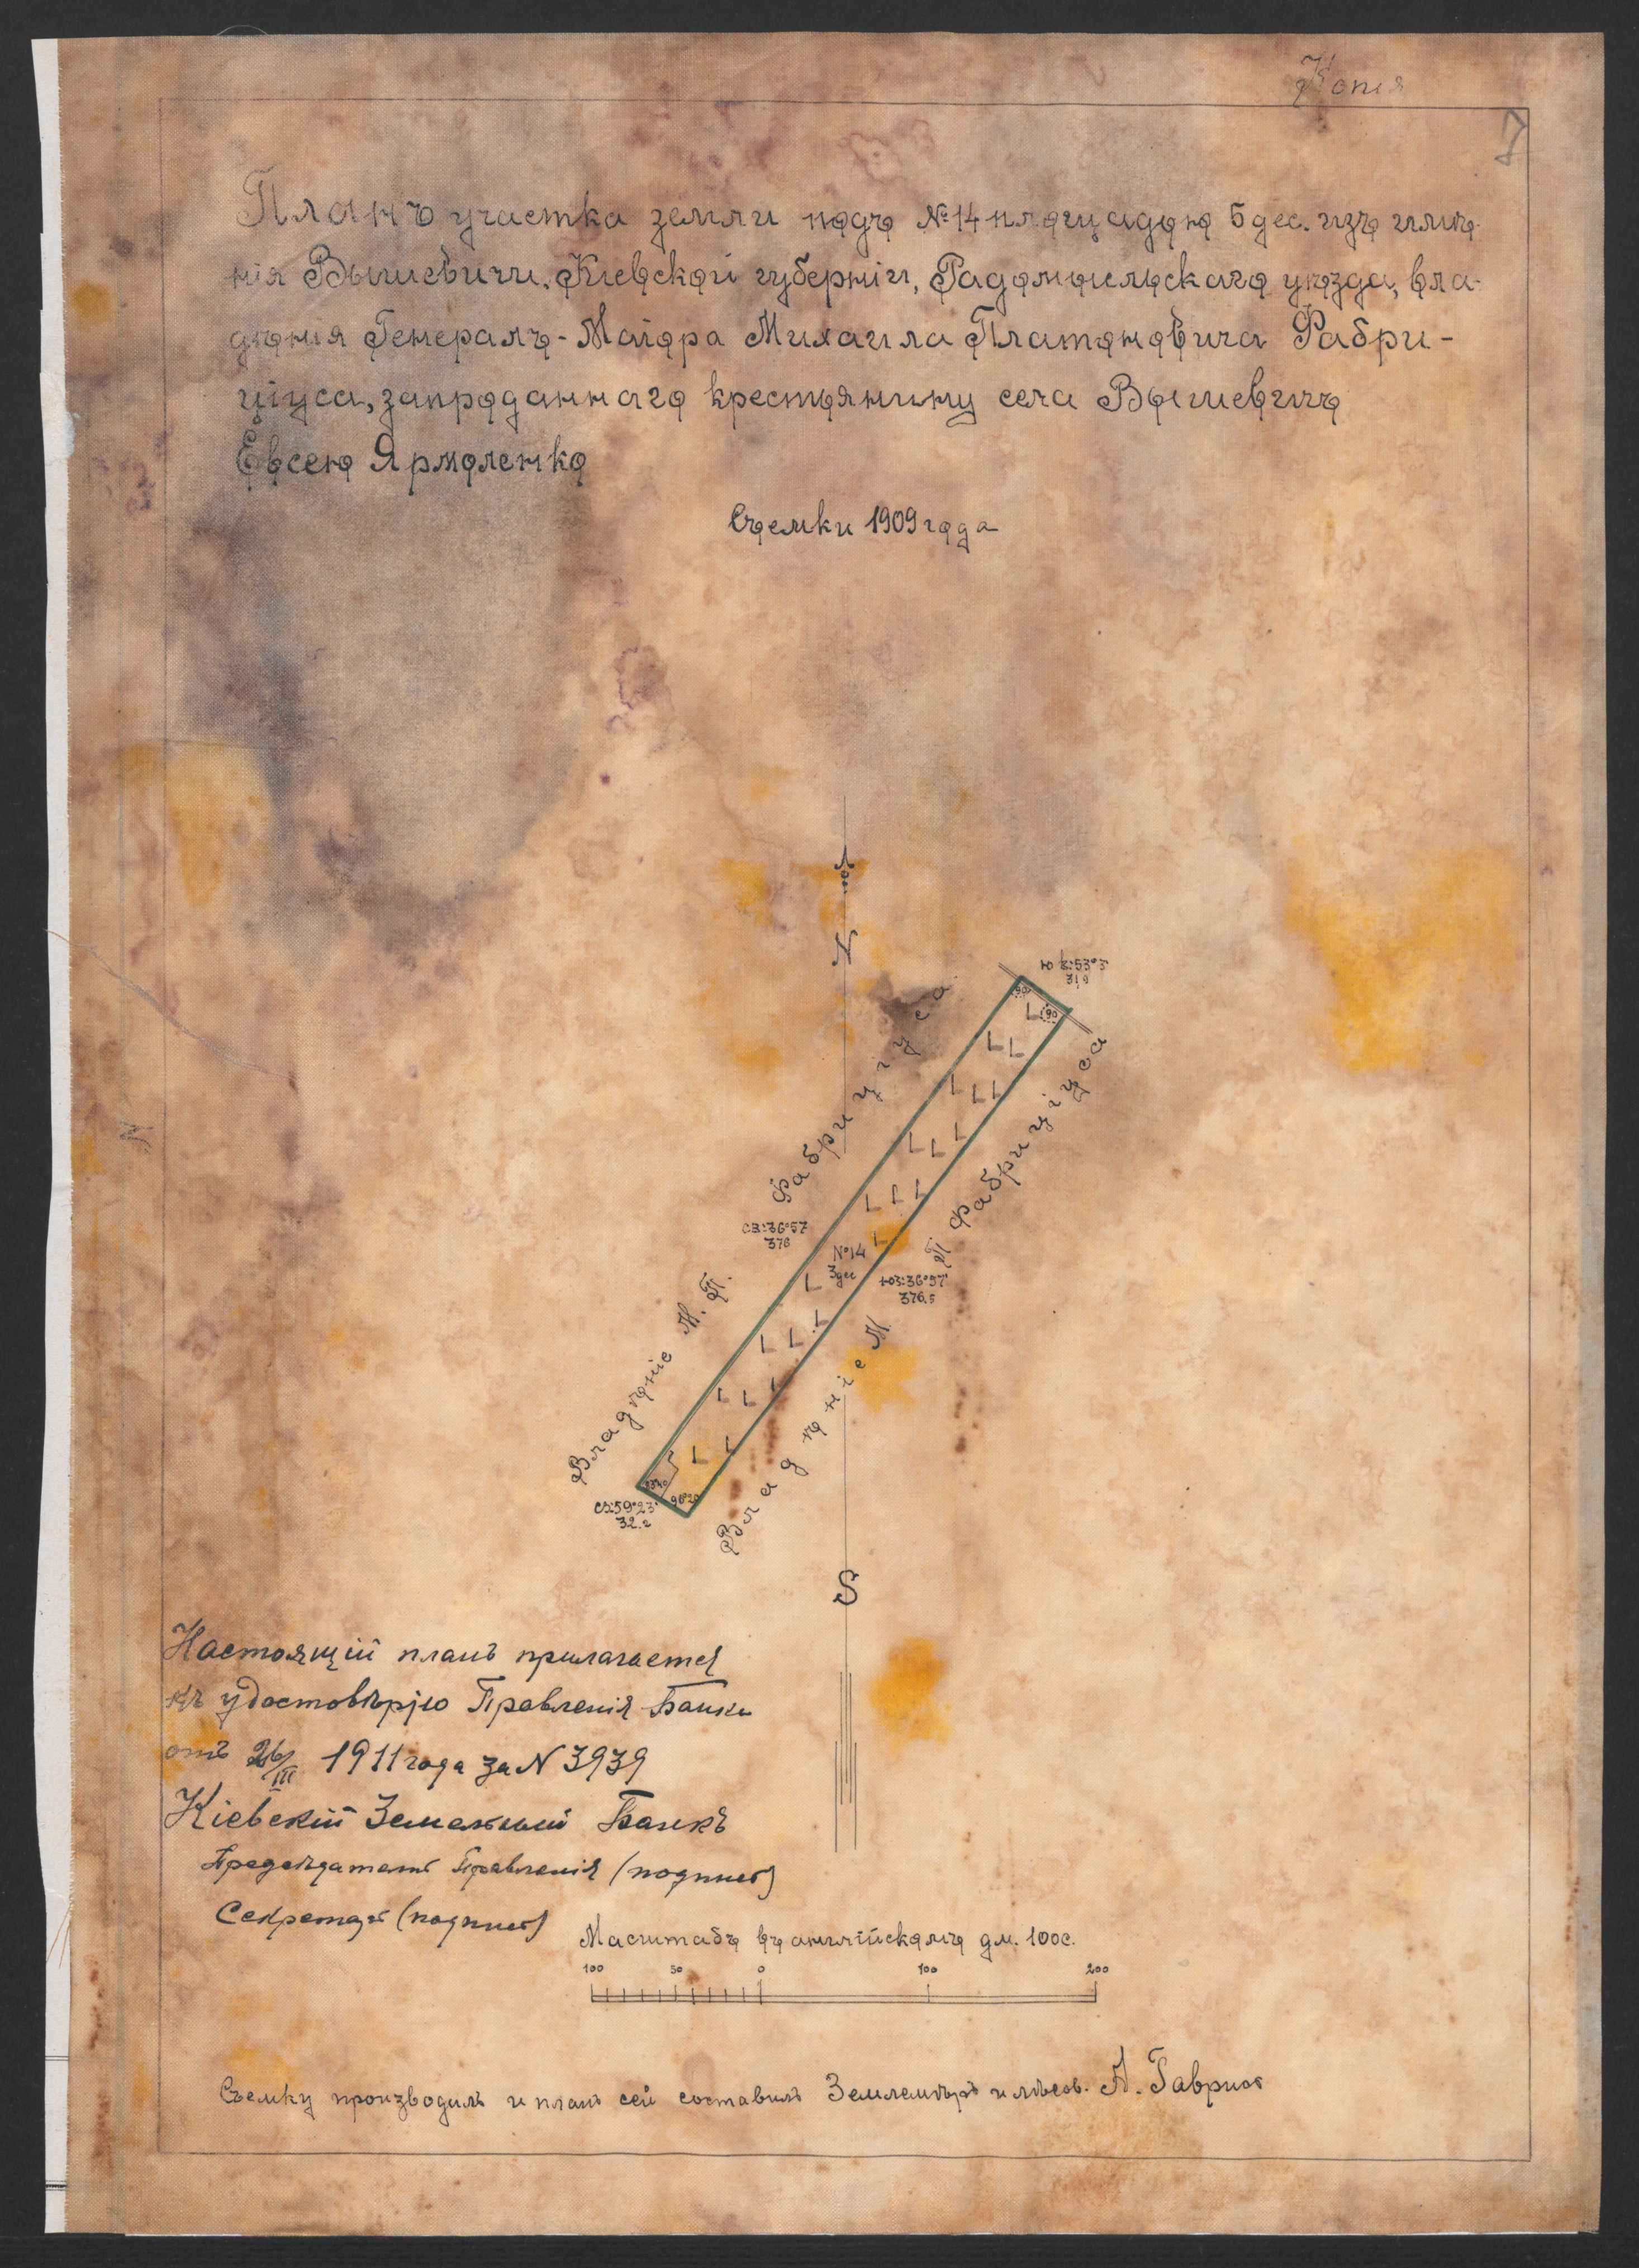 Копія
7
Планъ участка земли подъ №14 площадью 5 дес. изъ имѣ-
нія Вышевичи, Кіевской губерніи, Радомысльскаго уѣзда, вла-
дѣнія Генералъ-Маіора Михаила Платоновича Фабри-
ціуса, запроданнаго крестьянину села Вышевичъ
Евсею Ярмоленко
Съемки 1909 года
N
ЮВ:53°3'
31,9
90
90
Владѣніе М. П. Фабриціуса
СВ:36°57'
376
№14
5 дес
ЮЗ:36°57'
376,5
Владѣніе М П Фабриціуса
СЗ:59°23'
32.2
S
Настоящій планъ прилагается
къ удостовѣрію Правленія Банка
отъ 26/III 1911 года за N 3939
Кіевскій Земельный Банкъ
Предсѣдатель Правленія (подпись)
Секретарь (подпись)
Масштабъ въ англійскомъ дм. 100с.
100 50 0 100 200
Съемку производилъ и планъ сей составилъ Землемѣръ и лѣсов. А.